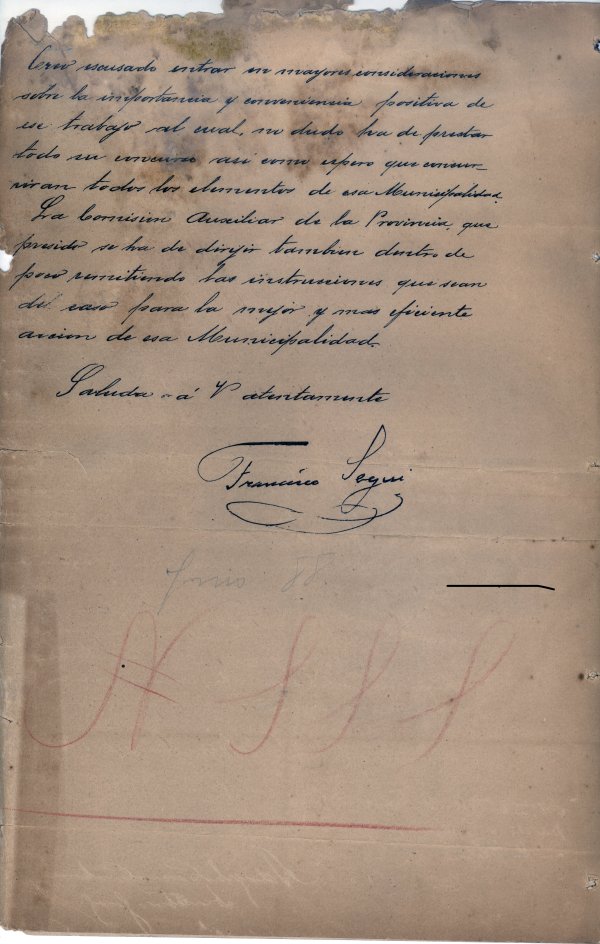 Creo escusado entrar en mayores consideraciones
sobre la importancia y conveniencia positiva de
ese trabajo al cual, no dudo ha de prestar
todo su concurso asi como espero que concur-
riran todos los elementos de esa Municipalidad.
La Comision Auxiliar de la Provincia que
presido se ha de dirijir tambien dentro de
poco remitiendo las instrucciones que sean
del caso para la mejor y mas eficiente
accion de esa Municipalidad.
Saluda á V atentamente
Francisco Segui
Junio 88.